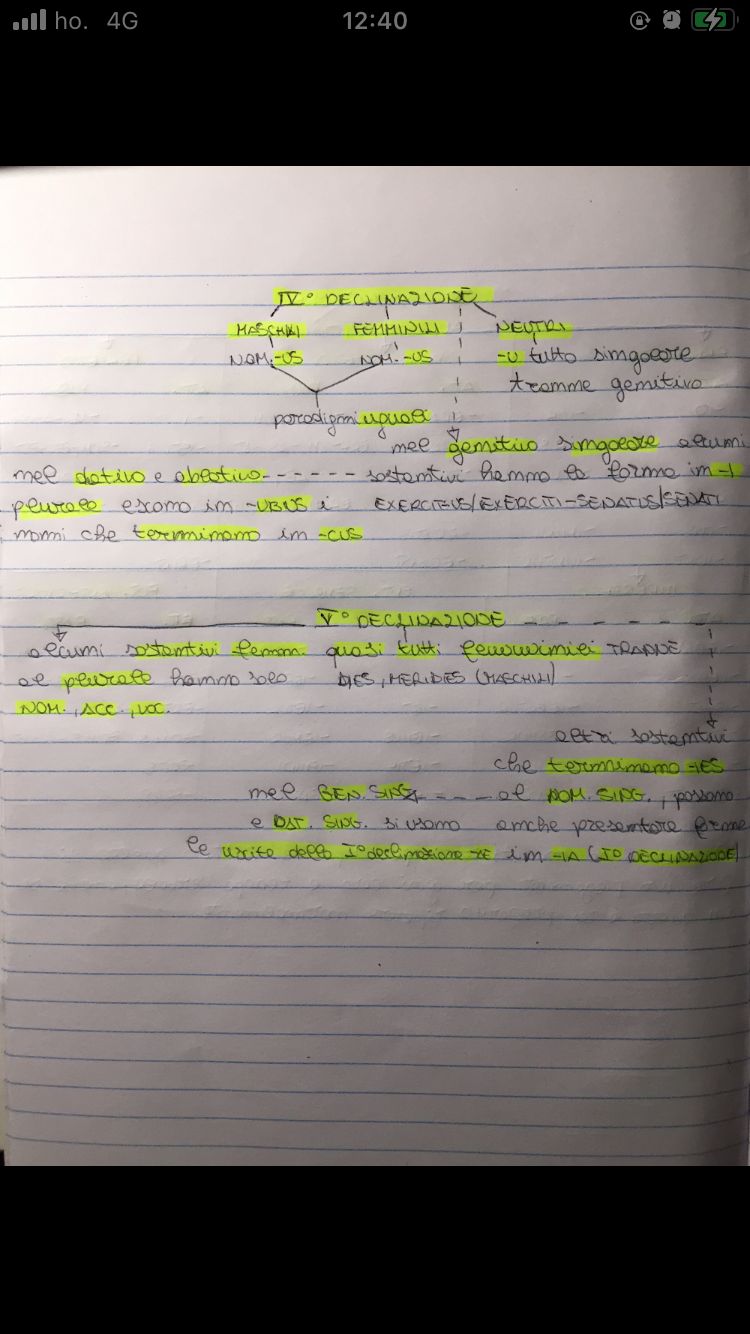 ho. 4G 12:40
IV° DECLINAZIONE
MASCHILI FEMMINILI NEUTRI
NOM. -US NOM. -US -U tutto singolare
tranne genitivo
paradigmi uguali
nel genitivo singolare alcuni
nel dativo e ablativo - - - - - - sostantivi hanno la forma in -I
plurale escono in -UBUS i EXERCITUS/EXERCITI-SENATUS/SENATI
nomi che terminano in -CUS
V° DECLINAZIONE
alcuni sostantivi femm. quasi tutti femminili TRANNE
al plurale hanno solo DIES, MERIDIES (MASCHILI)
NOM., ACC., VOC.
altri sostantivi
che terminano -IES
nel GEN. SING. - - - - al NOM. SING., possono
e DAT. SING. si usano anche presentare forme
le uscite della I° declinazione -AE in -IA (I° DECLINAZIONE)